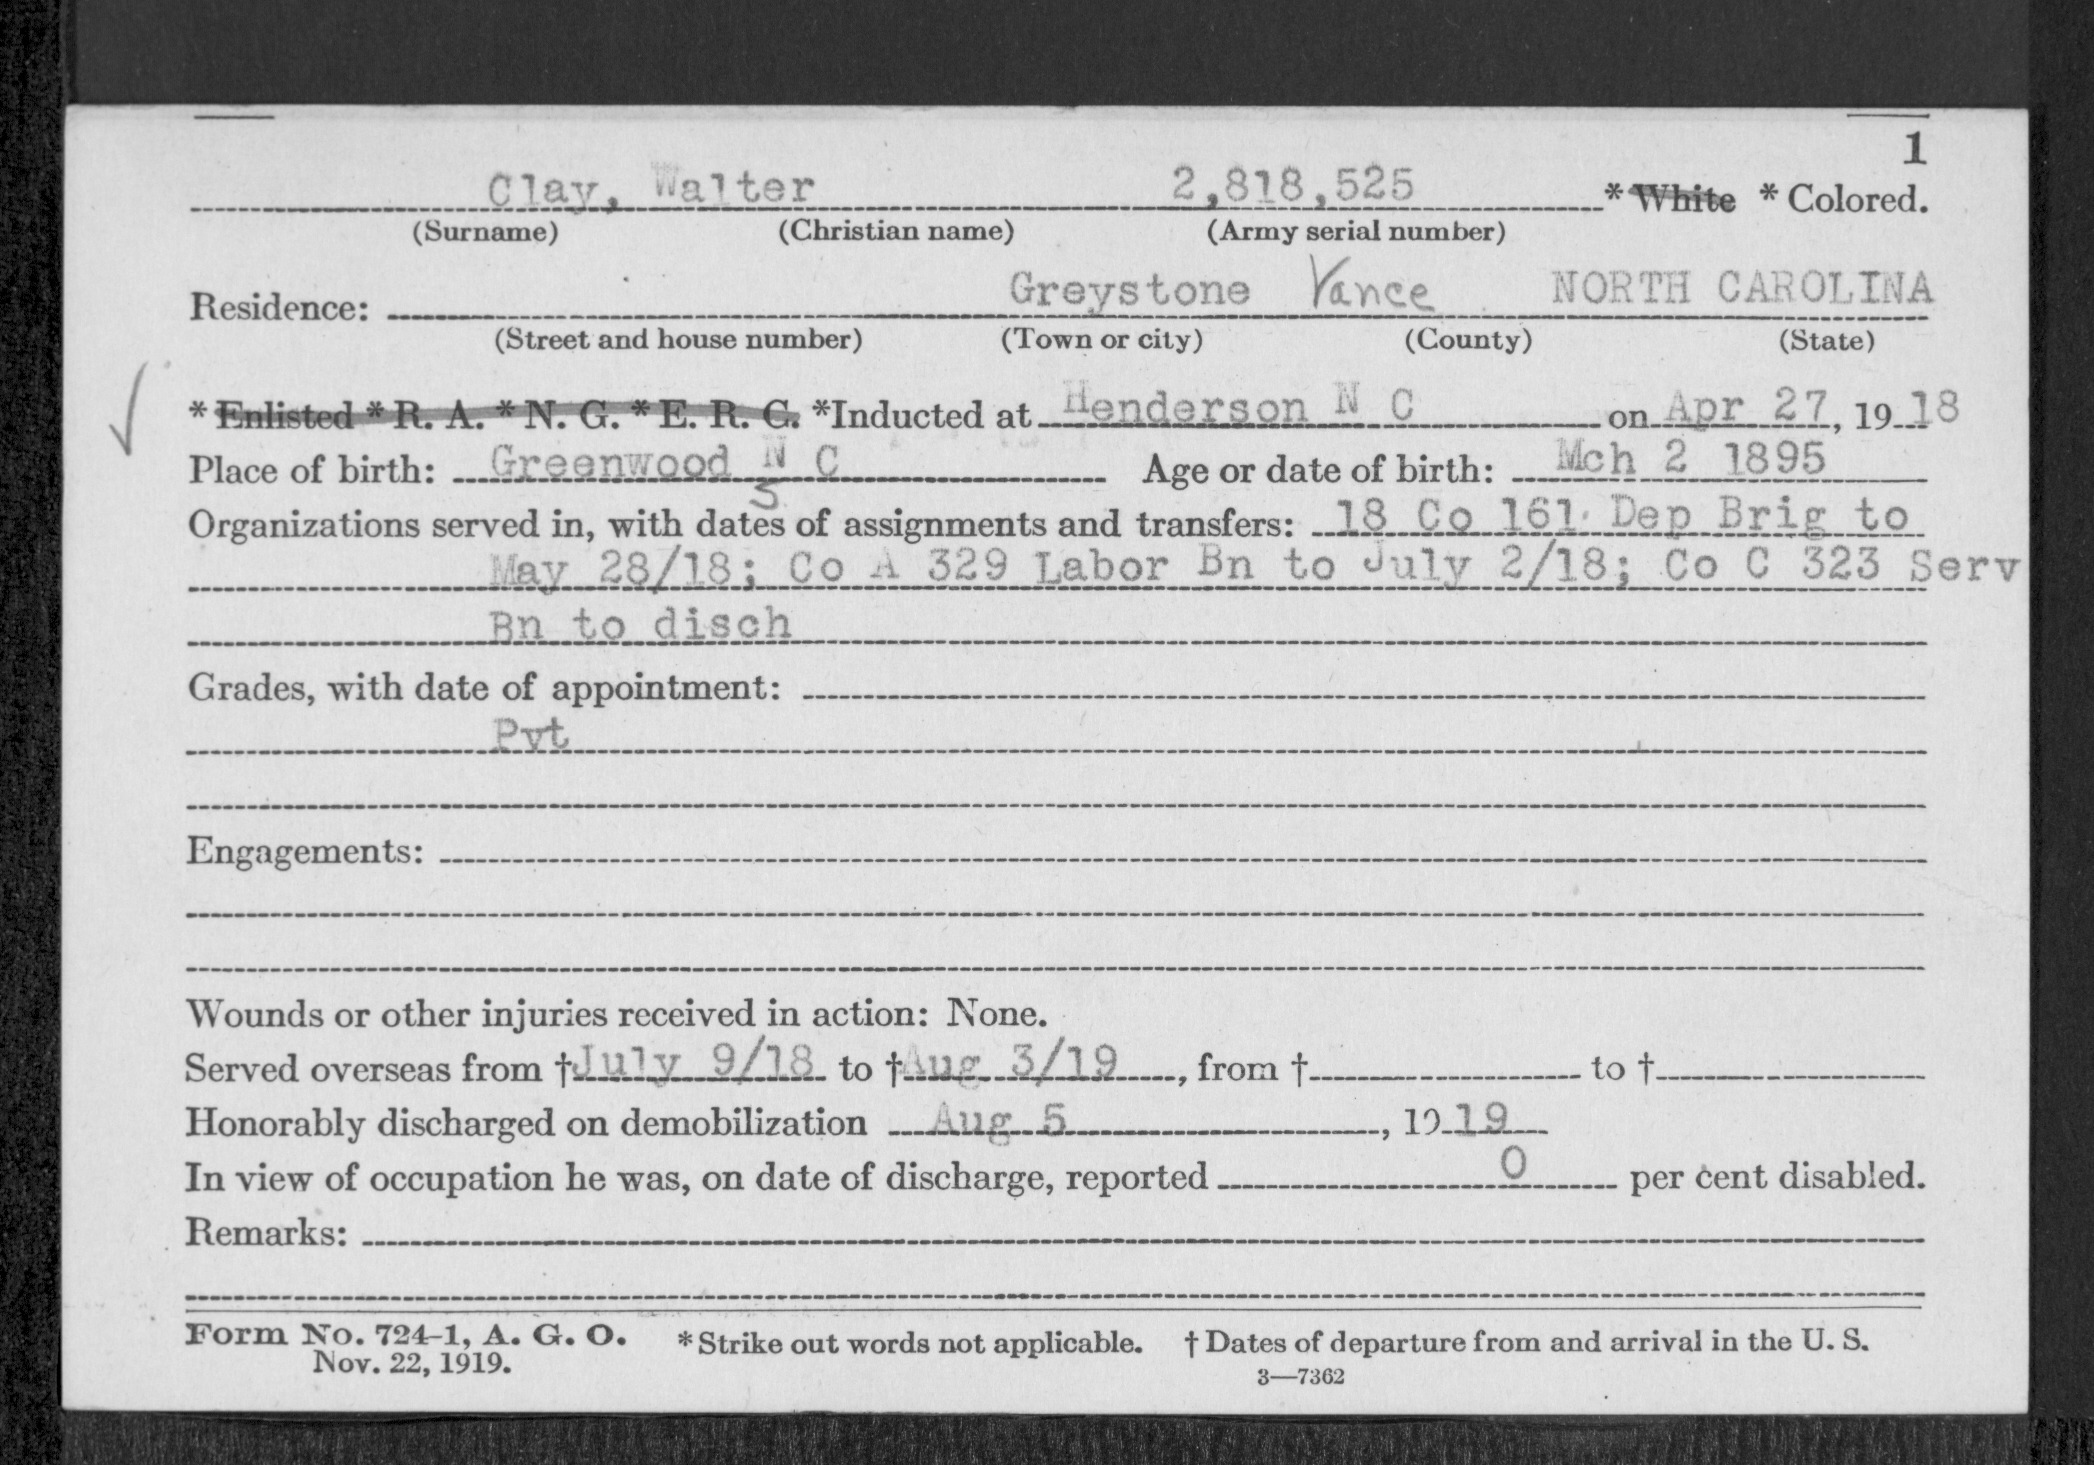 1
Clay, Walter 2,818,525 * White * Colored.
(Surname) (Christian name) (Army serial number)
Residence: Greystone Vance NORTH CAROLINA
(Street and house number) (Town or city) (County) (State)
* Enlisted * R. A. * N. G. * E. R. C. *Inducted at Henderson N C on Apr 27, 1918
Place of birth: Greenwood N C Age or date of birth: Mch 2 1895
S
Organizations served in, with dates of assignments and transfers: 18 Co 161 Dep Brig to
May 28/18; Co A 329 Labor Bn to July 2/18; Co C 323 Serv
Bn to disch
Grades, with date of appointment:
Pvt
Engagements:
Wounds or other injuries received in action: None.
Served overseas from †July 9/18 to †Aug 3/19, from † to †
Honorably discharged on demobilization Aug 5, 1919
In view of occupation he was, on date of discharge, reported 0 per cent disabled.
Remarks:
Form No. 724-1, A. G. O. *Strike out words not applicable. † Dates of departure from and arrival in the U. S.
Nov. 22, 1919. 3—7362